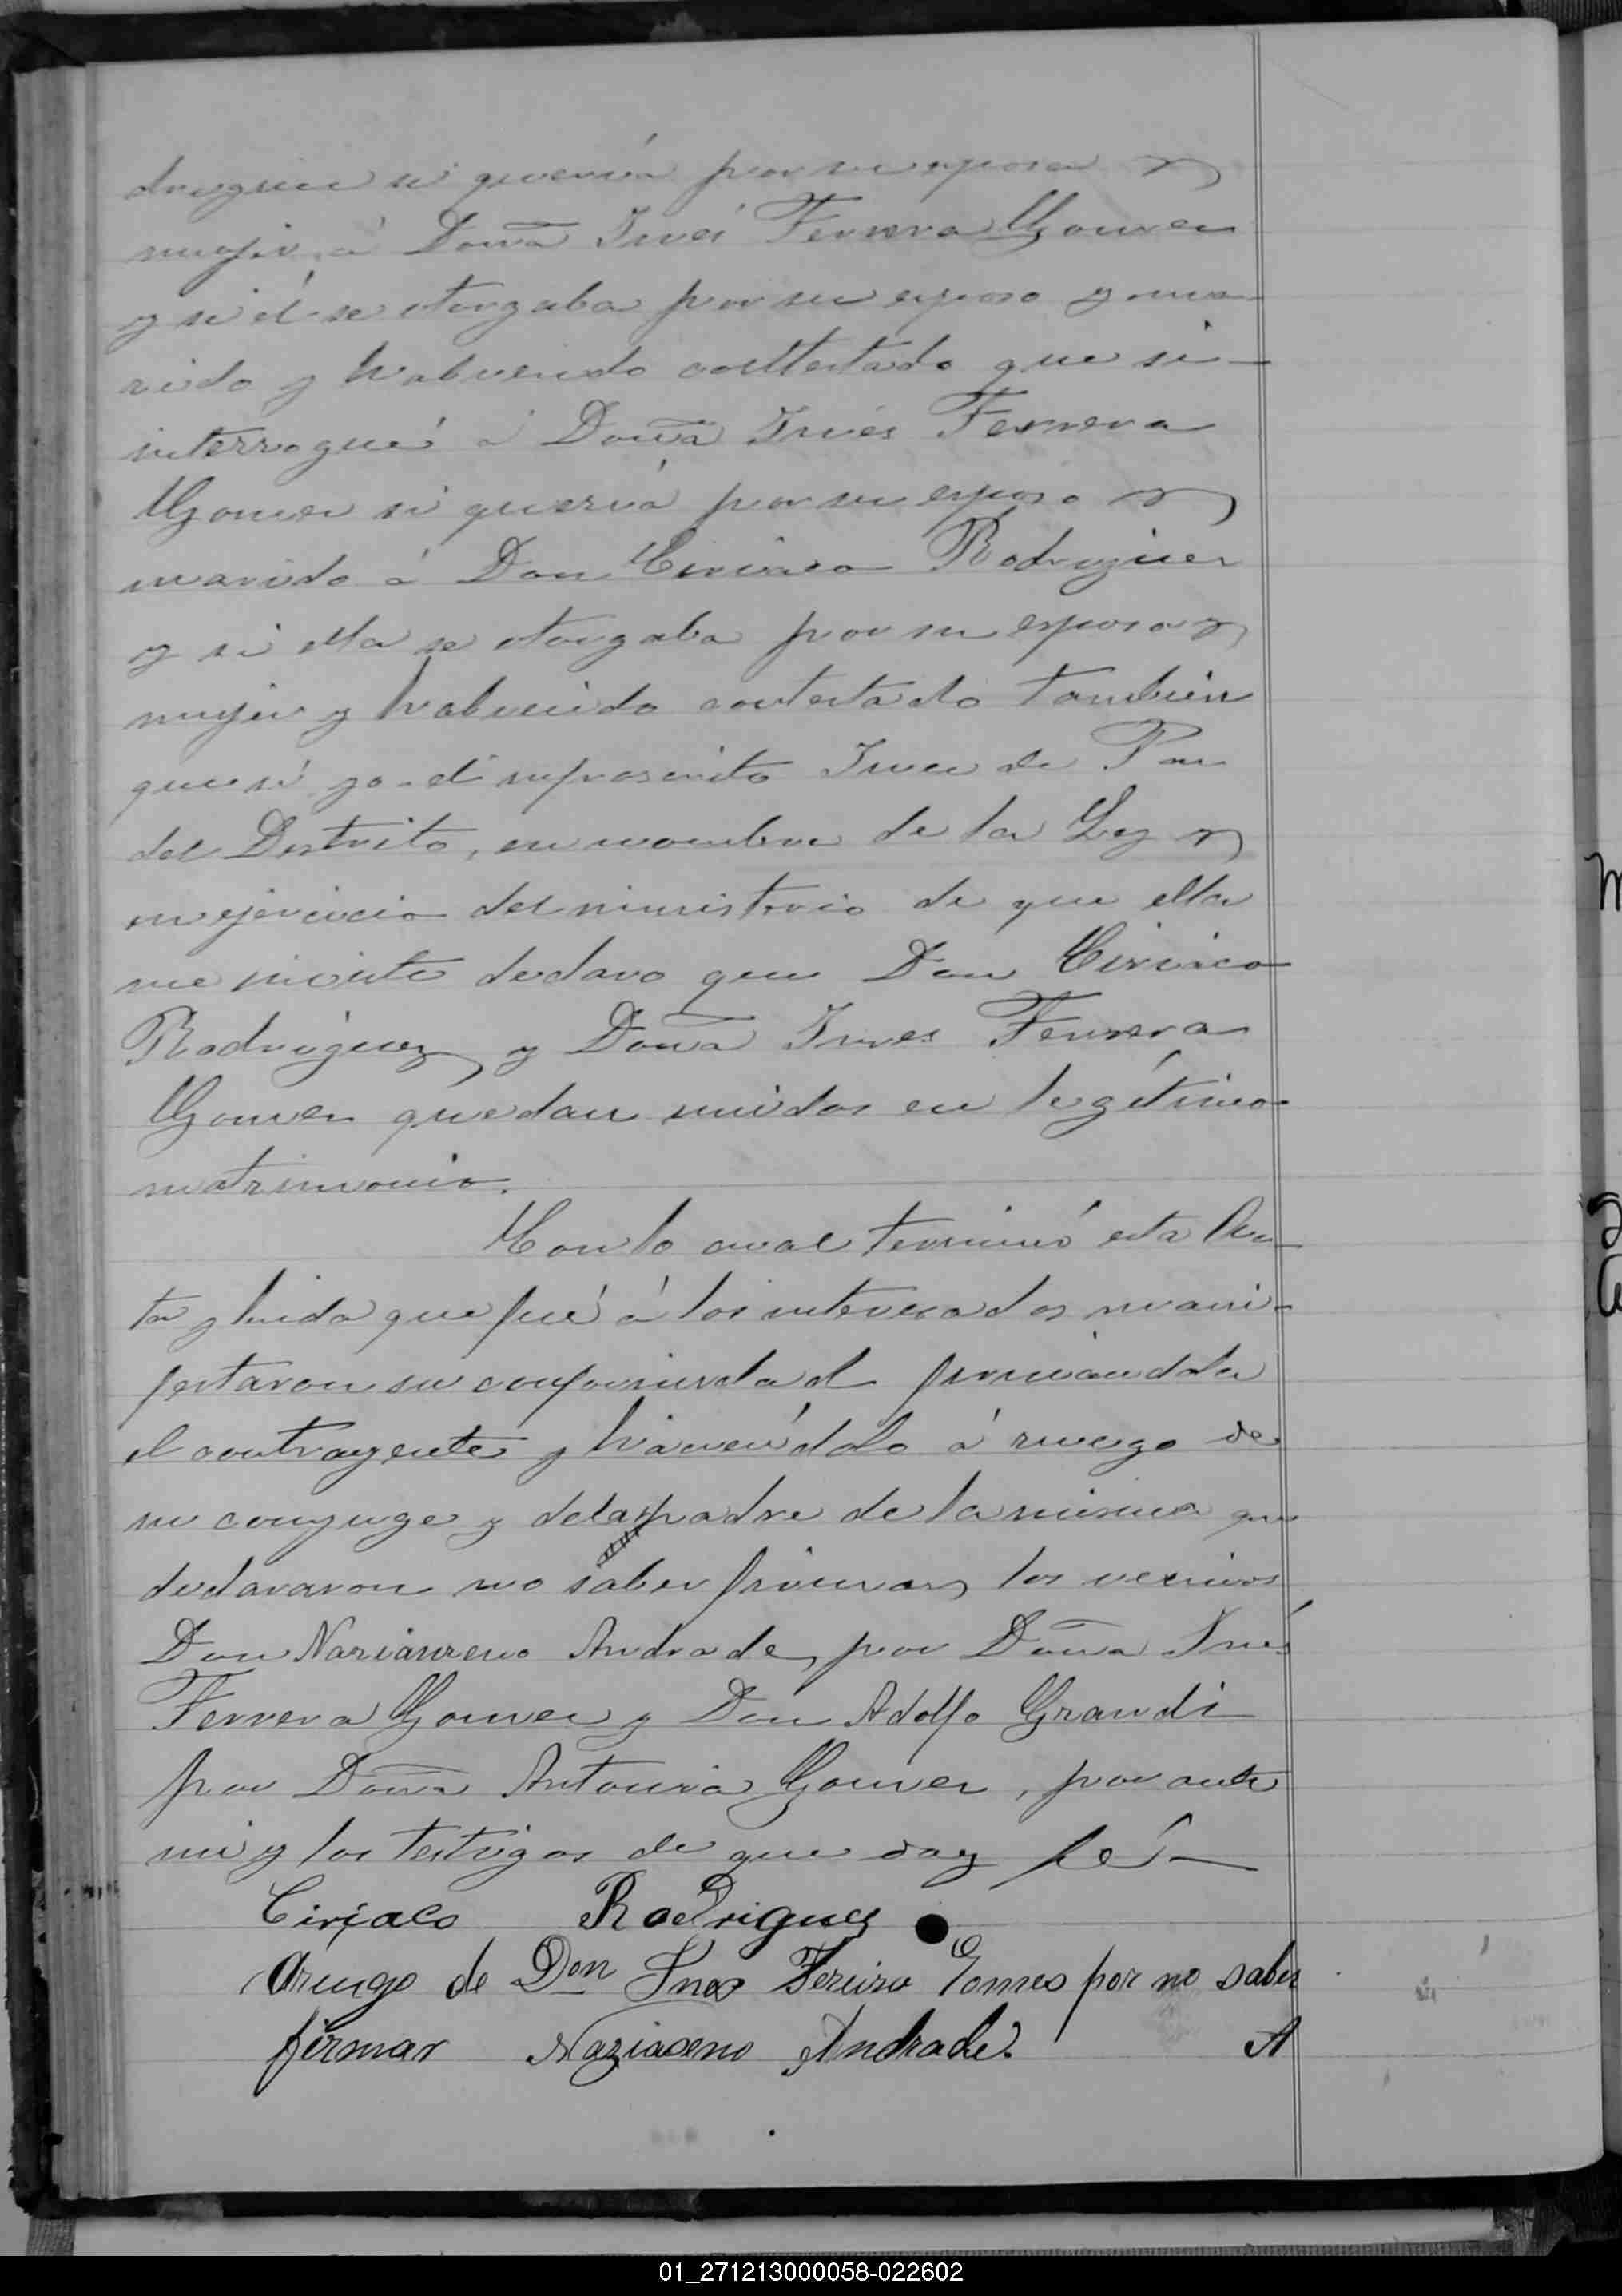 driguez si quería por su esposa y
mujer, á Doña Inés Ferrera Gomez
y si él se otorgaba por su esposo y ma-
rido y habiendo conttestado que si-
interrogué á Doña Inés Ferrera
Gomez si quería por su esposo y
marido á Don Ciriaco Rodriguez
y si ella se otorgaba por su esposa y
mujer y habiendo contestado tambien
que sí yo el infrascrito Juez de Paz
del Distrito, en nombre de la Ley y
en ejercicio del ministerio de que ella
me inviste declaro que Don Ciriaco
Rodriguez y Doña Ines Ferrera
Gomez quedan unidos en legítimo
matrimonio.
Con lo cual terminó esta Ac-
ta y leida que fué á los interesados mani-
festaron su conformidad firmándola
el contrayente y haciendólo á ruego de
su conyuge y de la padre de la misma que
declararon no saber firmar, los vecinos
Don Nazianzeno Andrade, por Doña Inés
Ferrera Gomez y Don Adolfo Grandi
por Doña Antonia Gomez, por ante
mi y los testigos de que doy fé.-
Ciriaco Rodriguez
Aruego de Don Ines Fereira Gomes por no saber
firmar Naziaseno Andrade. A
01_271213000058-022602